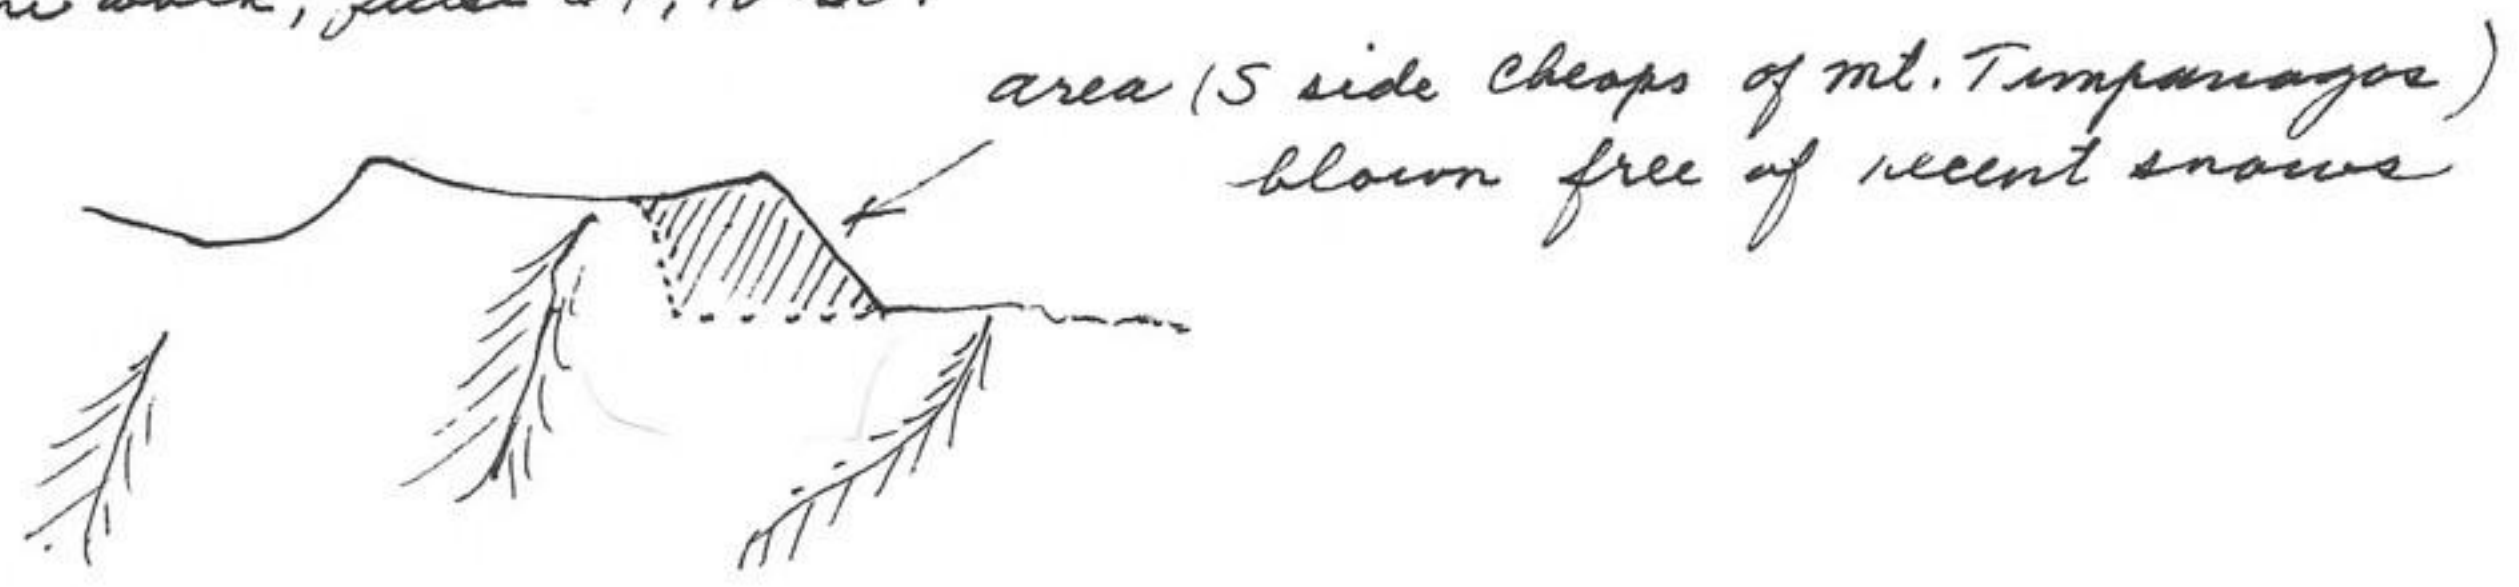 work,
area (S side Cheops of mt. Timpanogos)
blown free of recent snows